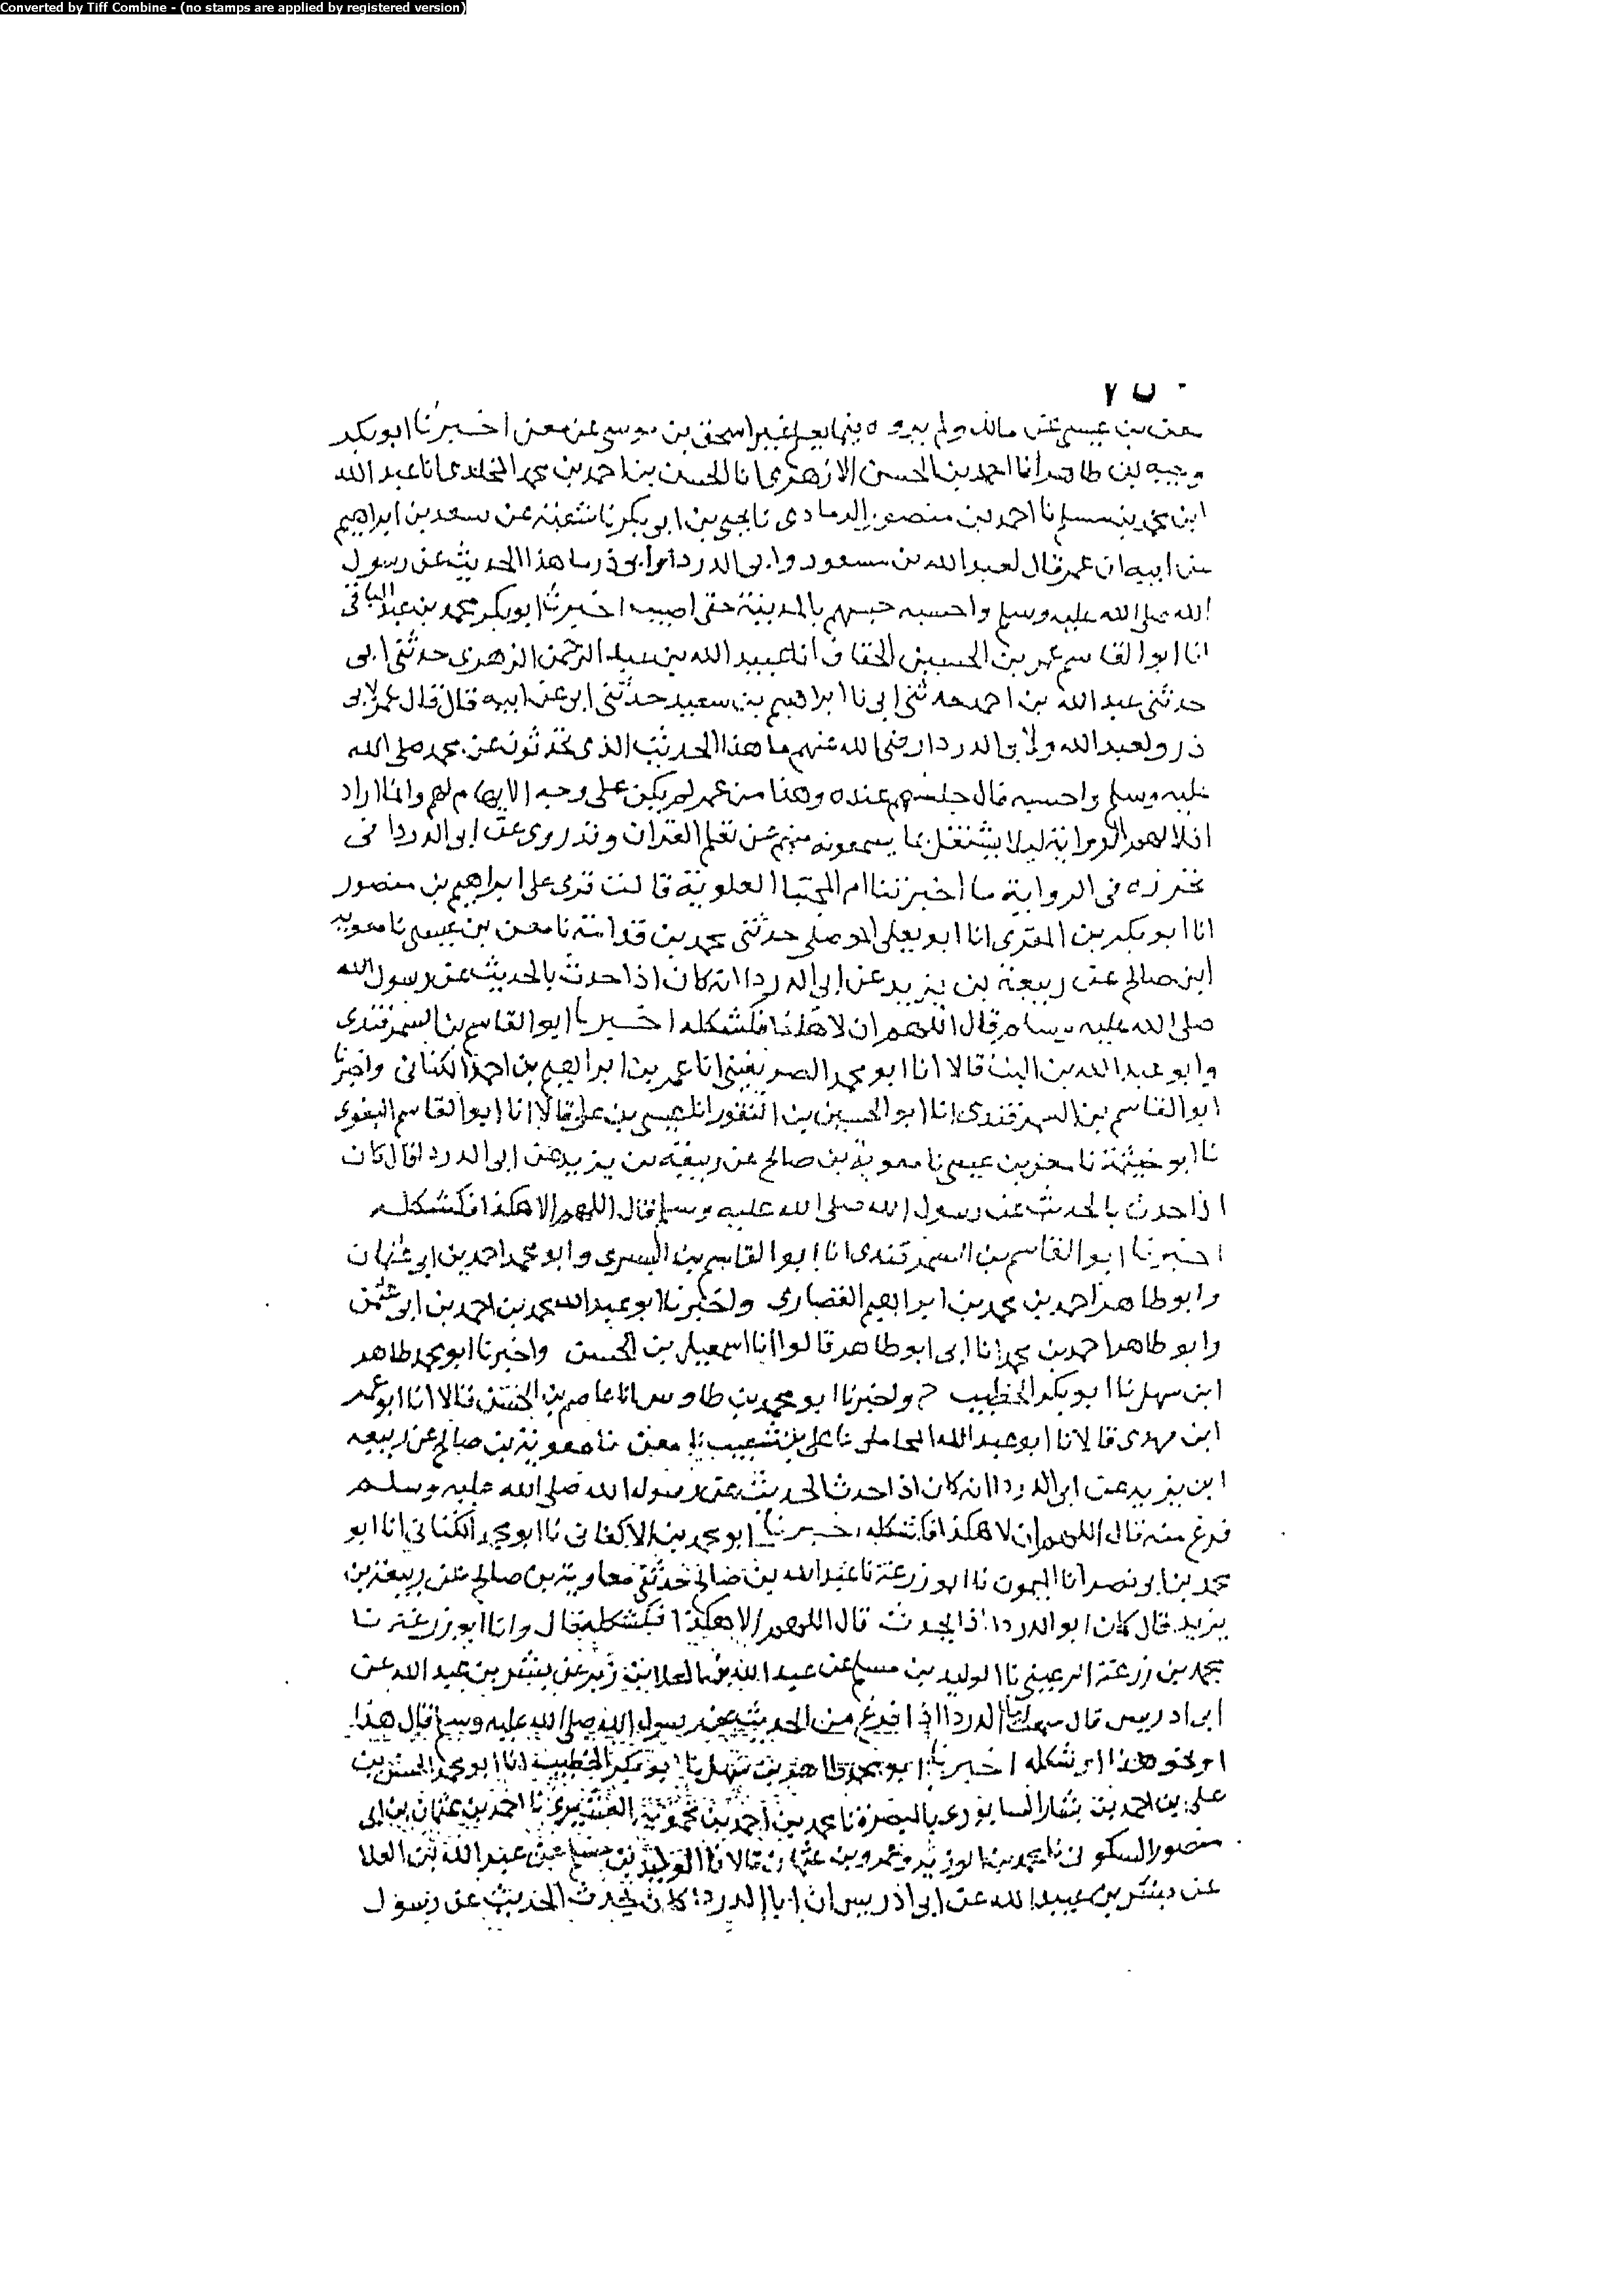 Converted by Tiff Combine - (no stamps are applied by registered version)
معن بن عيسى عن مالك ولم يروه فيما يعلم غير اسحق بن موسى عن معن اخبرنا ابو بكر
وجيه بن طاهر انا احمد بن الحسن الازهرى انا الحسن بن احمد بن محمد المخلدى انا عبد الله
ابن محمد بن مسلم نا احمد بن منصور الرمادى نا يحيى بن ابى بكر نا شعبة عن سعد بن ابراهيم
عن ابيه ان عمر قال لعبد الله بن مسعود وابى الدردا وابى ذر ما هذا الحديث عن رسول
الله صلى الله عليه وسلم واحسبه حبسهم بالمدينة حتى اصيب اخبرنا ابو بكر محمد بن عبد الباقى
انا ابو القاسم عمر بن الحسين الخفاف انا عبيد الله بن عبد الرحمن الزهرى حدثنى ابى
حدثنى عبد الله بن احمد حدثنى ابى نا ابراهيم بن سعيد حدثنى ابى عن ابيه قال قال عمر لابى
ذر ولعبد الله ولابى الدردا رضى الله عنهم ما هذا الحديث الذى تحدثون عن محمد صلى الله
عليه وسلم واحسبه قال حبسهم عنده وهذا من عمر لم يكن على وجه الاتهام لهم وانما اراد
اقلالهم الرواية ليلا يشتغل بما يسمعونه منهم عن تعلم القران وقد روى عن ابى الدردا فى
تحرزه فى الرواية ما اخبرتنا ام المجتبا العلوية قالت قرى على ابراهيم بن منصور
انا ابو بكر بن المقرى انا ابو يعلى الموصلى حدثنى محمد بن قدامة نا معن بن عيسى نا معويه
ابن صالح عن ربيعة بن يزيد عن ابى الدردا انه كان اذا حدث بالحديث عن رسول الله
صلى الله عليه وسلم قال اللهم ان لا هكذا فكشكله اخبرنا ابو القاسم بن السمرقندى
وابو عبد الله بن البنا قالا انا ابو محمد الصريفينى انا عمر بن ابراهيم بن احمد الكتانى واخبرنا
ابو القاسم بن السمرقندى انا ابو الحسين بن النقور انا عيسى بن على قالا انا ابو القاسم البغوى
نا ابو خيثمة نا معن بن عيسى نا معوية بن صالح عن ربيعة بن يزيد عن ابى الدردا قال كان
اذا حدث بالحديث عن رسول الله صلى الله عليه وسلم قال اللهم الا هكذا فكشكله
اخبرنا ابو القاسم بن السمرقندى انا ابو القاسم بن البسرى وابو محمد احمد بن ابى عثمان
وابو طاهر احمد بن محمد بن ابراهيم القصارى واخبرنا ابو عبد الله محمد بن احمد بن ابى عثمن
وابو طاهر احمد بن محمد انا ابى ابو طاهر قالوا انا اسمعيل بن الحسن واخبرنا ابو محمد طاهر
ابن سهل نا ابو بكر الخطيب ح واخبرنا ابو محمد بن طاوس انا عاصم بن الحسن قالا انا ابو عمر
ابن مهدى قالا نا ابو عبد الله المحاملى نا على بن شعيب نا معن نا معوية بن صالح عن ربيعه
ابن يزيد عن ابى الدردا انه كان اذا حدث الحديث عن رسول الله صلى الله عليه وسلم
فرغ منه قال اللهم ان لا هكذا فكشكله اخبرنا ابو محمد بن الاكفانى نا ابو محمد الكتانى انا ابو
محمد بن ابو نصر انا الميمون نا ابو زرعة نا عبد الله بن صالح حدثنى معاوية بن صالح عن ربيعة بن
يزيد قال كان ابو الدردا اذا يحدث قال اللهم الا هكذا فكشكله قال وانا ابو زرعة نا
محمد بن زرعة الرعينى نا الوليد بن مسلم عن عبد الله بن العلا بن زبر عن بشر بن عبد الله عن
ابى ادريس قال سمعت ابا الدردا اذا فرغ من الحديث عن رسول الله صلى الله عليه وسلم قال هذا
او نحو هذا او شكله اخبرنا ابو محمد طاهر بن سهل نا ابو بكر الخطيب انا ابو محمد الحسن بن
على بن احمد بن بشار السابورى بالبصرة نا محمد بن احمد بن محموية العسكرى نا احمد بن عثمان بن ابى
منصور السكونى نا محمد بن الوزير وعمرو بن عثمان قالا نا الوليد بن مسلم عن عبد الله بن العلا
عن بشر بن عبيد الله عن ابى ادريس ان ابا الدردا كان يحدث الحديث عن رسول